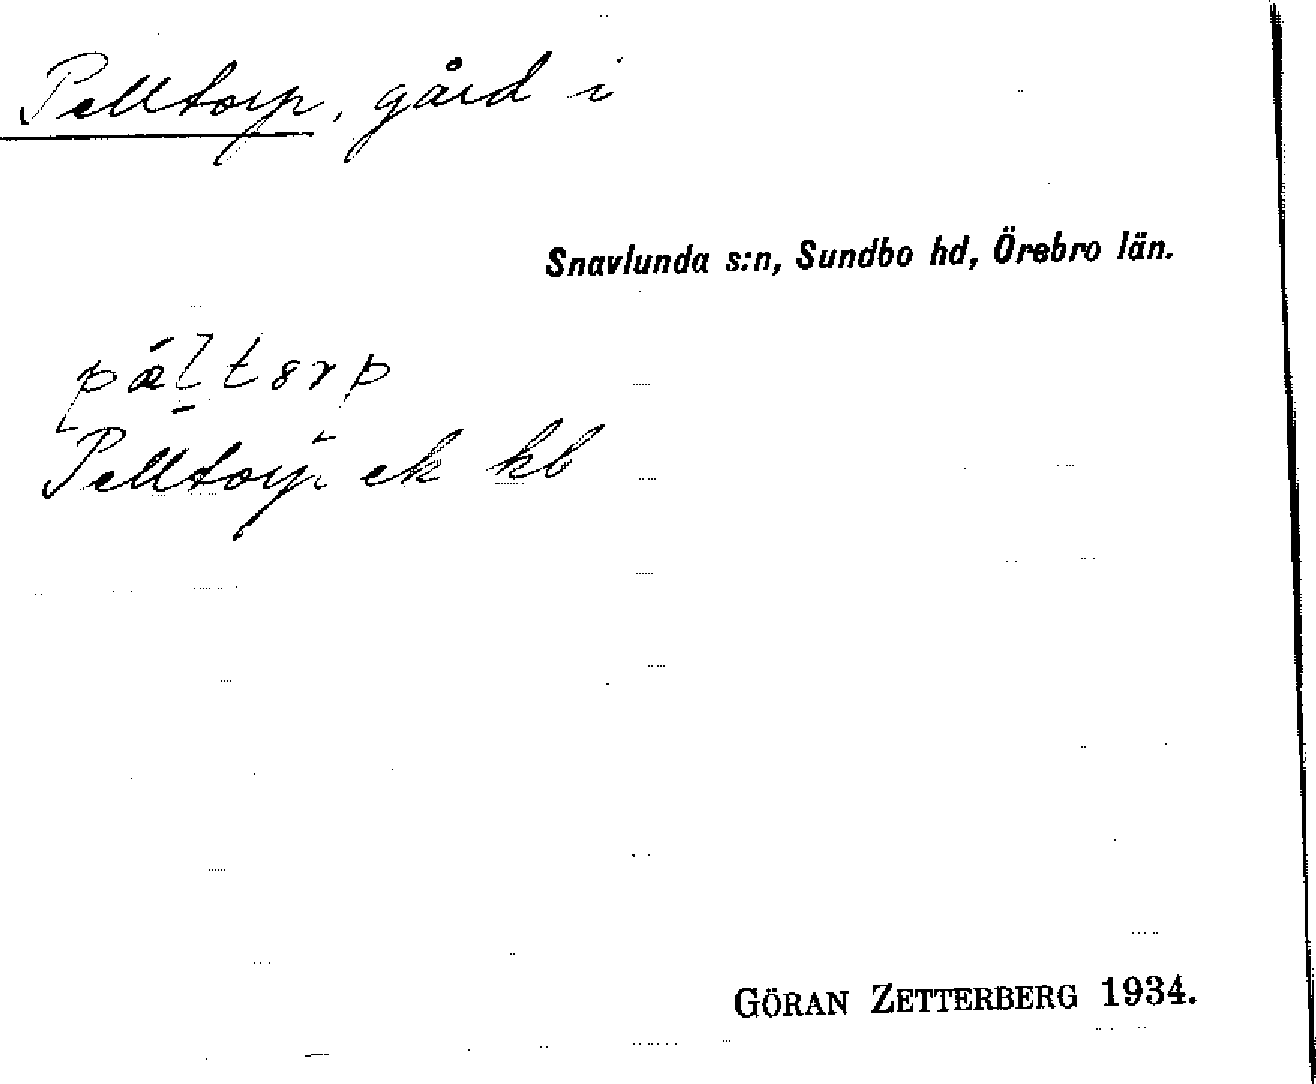 Pelltorp, gård i
Snavlunda s:n, Sundbo hd, Örebro län.
pæ̀ltɞrp
Pelltorp ek kb
GÖRAN ZETTERBERG 1934.